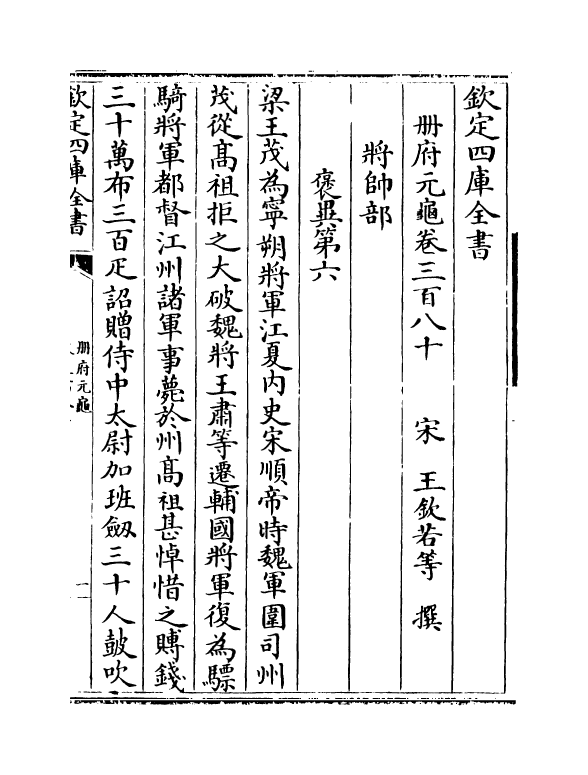 欽定四庫全書
冊府元龜卷三百八十　宋　王欽若等　撰
將帥部
褒異第六
梁王茂為寧朔將軍江夏內史宋順帝時魏軍圍司州
茂從髙祖拒之大破魏將王肅等遷輔國將軍復為驃
騎將軍都督江州諸軍事薨於州髙祖甚悼惜之賻錢
三十萬布三百疋詔贈侍中太尉加班劔三十人鼓吹
欽定四庫全書
冊府元龜
一